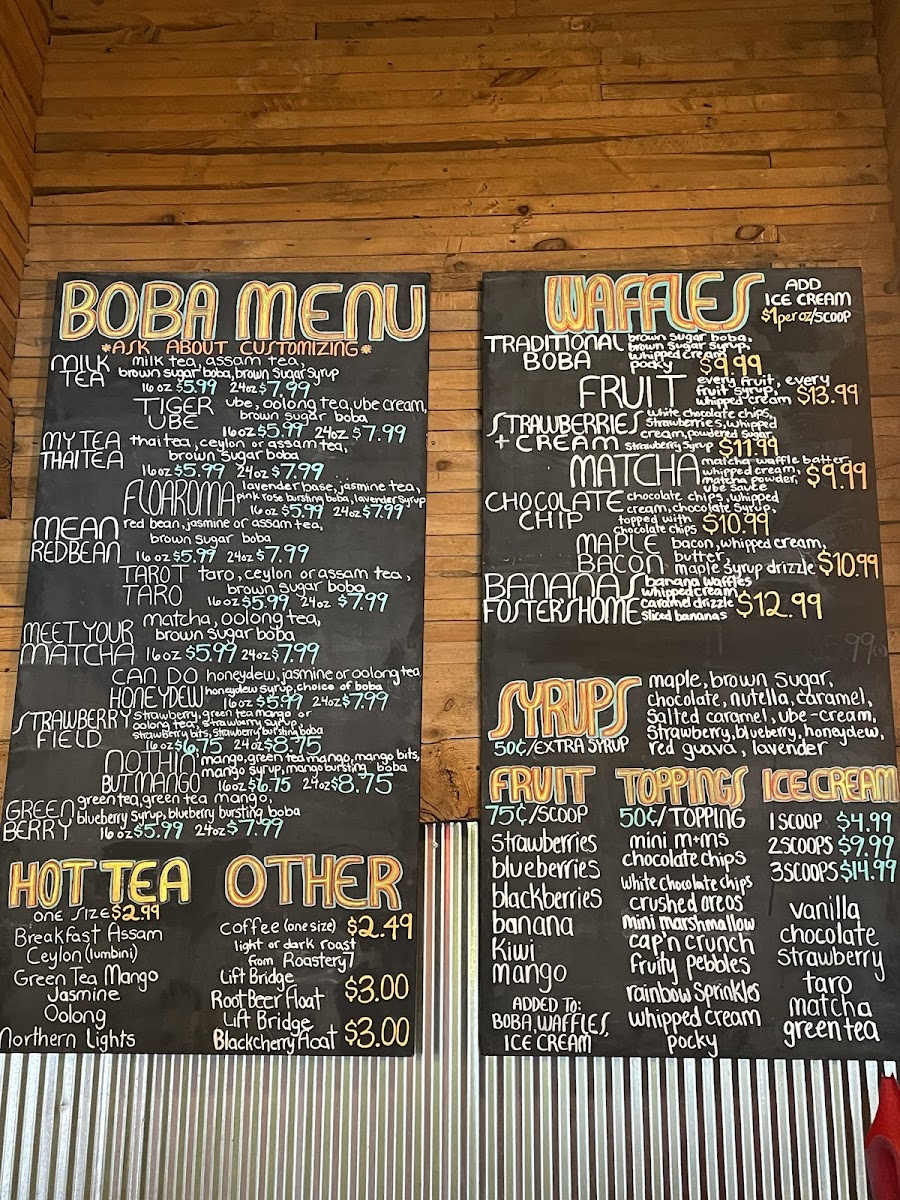 BOBA MENU
*ASK ABOUT CUSTOMIZING*
MILK TEA
milk tea, assam tea,
brown sugar boba, brown sugar syrup
16 oz $5.99 24oz $7.99
TIGER UBE
ube, oolong tea, ube cream,
brown sugar boba
16 oz $5.99 24oz $7.99
MY TEA THAI TEA
thai tea, ceylon or assam tea,
brown sugar boba
16 oz $5.99 24oz $7.99
FLOAROMA
lavender base, jasmine tea,
pink rose bursting boba, lavender syrup
16 oz $5.99 24oz $7.99
MEAN REDBEAN
red bean, jasmine or assam tea,
brown sugar boba
16 oz $5.99 24oz $7.99
TAROT TARO
taro, ceylon or assam tea,
brown sugar boba
16 oz $5.99 24oz $7.99
MEET YOUR MATCHA
matcha, oolong tea,
brown sugar boba
16 oz $5.99 24oz $7.99
CAN DO HONEYDEW
honeydew, jasmine or oolong tea
honeydew syrup, choice of boba
16 oz $5.99 24oz $7.99
STRAWBERRY FIELD
strawberry, green tea mango or
oolong tea, strawberry syrup,
strawberry bits, strawberry bursting boba
16 oz $6.75 24oz $8.75
NOTHIN' BUT MANGO
mango, green tea mango, mango bits,
mango syrup, mango bursting boba
16oz $6.75 24oz $8.75
GREEN BERRY
green tea, green tea mango,
blueberry syrup, blueberry bursting boba
16 oz $5.99 24oz $7.99
HOT TEA
ONE SIZE $2.99
Breakfast Assam
Ceylon (lumbini)
Green Tea Mango
Jasmine
Oolong
Northern Lights
OTHER
coffee (one size) $2.49
light or dark roast
from Roastery7
Lift Bridge
Root Beer Float $3.00
Lift Bridge
Blackcherry Float $3.00
WAFFLES
ADD
ICE CREAM
$1 per oz/SCOOP
TRADITIONAL BOBA
brown sugar boba,
brown sugar syrup,
whipped cream
pocky $9.99
FRUIT
every fruit, every
fruit syrup,
whipped cream $13.99
STRAWBERRIES + CREAM
white chocolate chips,
strawberries, whipped
cream, powdered sugar
strawberry syrup $11.99
MATCHA
matcha waffle batter,
whipped cream,
matcha powder,
ube sauce $9.99
CHOCOLATE CHIP
chocolate chips, whipped
cream, chocolate syrup,
topped with
chocolate chips $10.99
MAPLE BACON
bacon, whipped cream,
butter,
maple syrup drizzle $10.99
BANANAS FOSTERS HOME
banana waffles
whipped cream
caramel drizzle
sliced bananas $12.99
SYRUPS
50¢/EXTRA SYRUP
maple, brown sugar,
chocolate, nutella, caramel,
salted caramel, ube-cream,
strawberry, blueberry, honeydew,
red guava, lavender
FRUIT
75¢/SCOOP
strawberries
blueberries
blackberries
banana
kiwi
mango
ADDED TO:
BOBA, WAFFLES,
ICE CREAM
TOPPINGS
50¢/TOPPING
mini m+ms
chocolate chips
white chocolate chips
crushed oreos
mini marshmallow
cap'n crunch
fruity pebbles
rainbow sprinkles
whipped cream
pocky
ICE CREAM
1 SCOOP $4.99
2 SCOOPS $9.99
3 SCOOPS $14.99
vanilla
chocolate
strawberry
taro
matcha
green tea